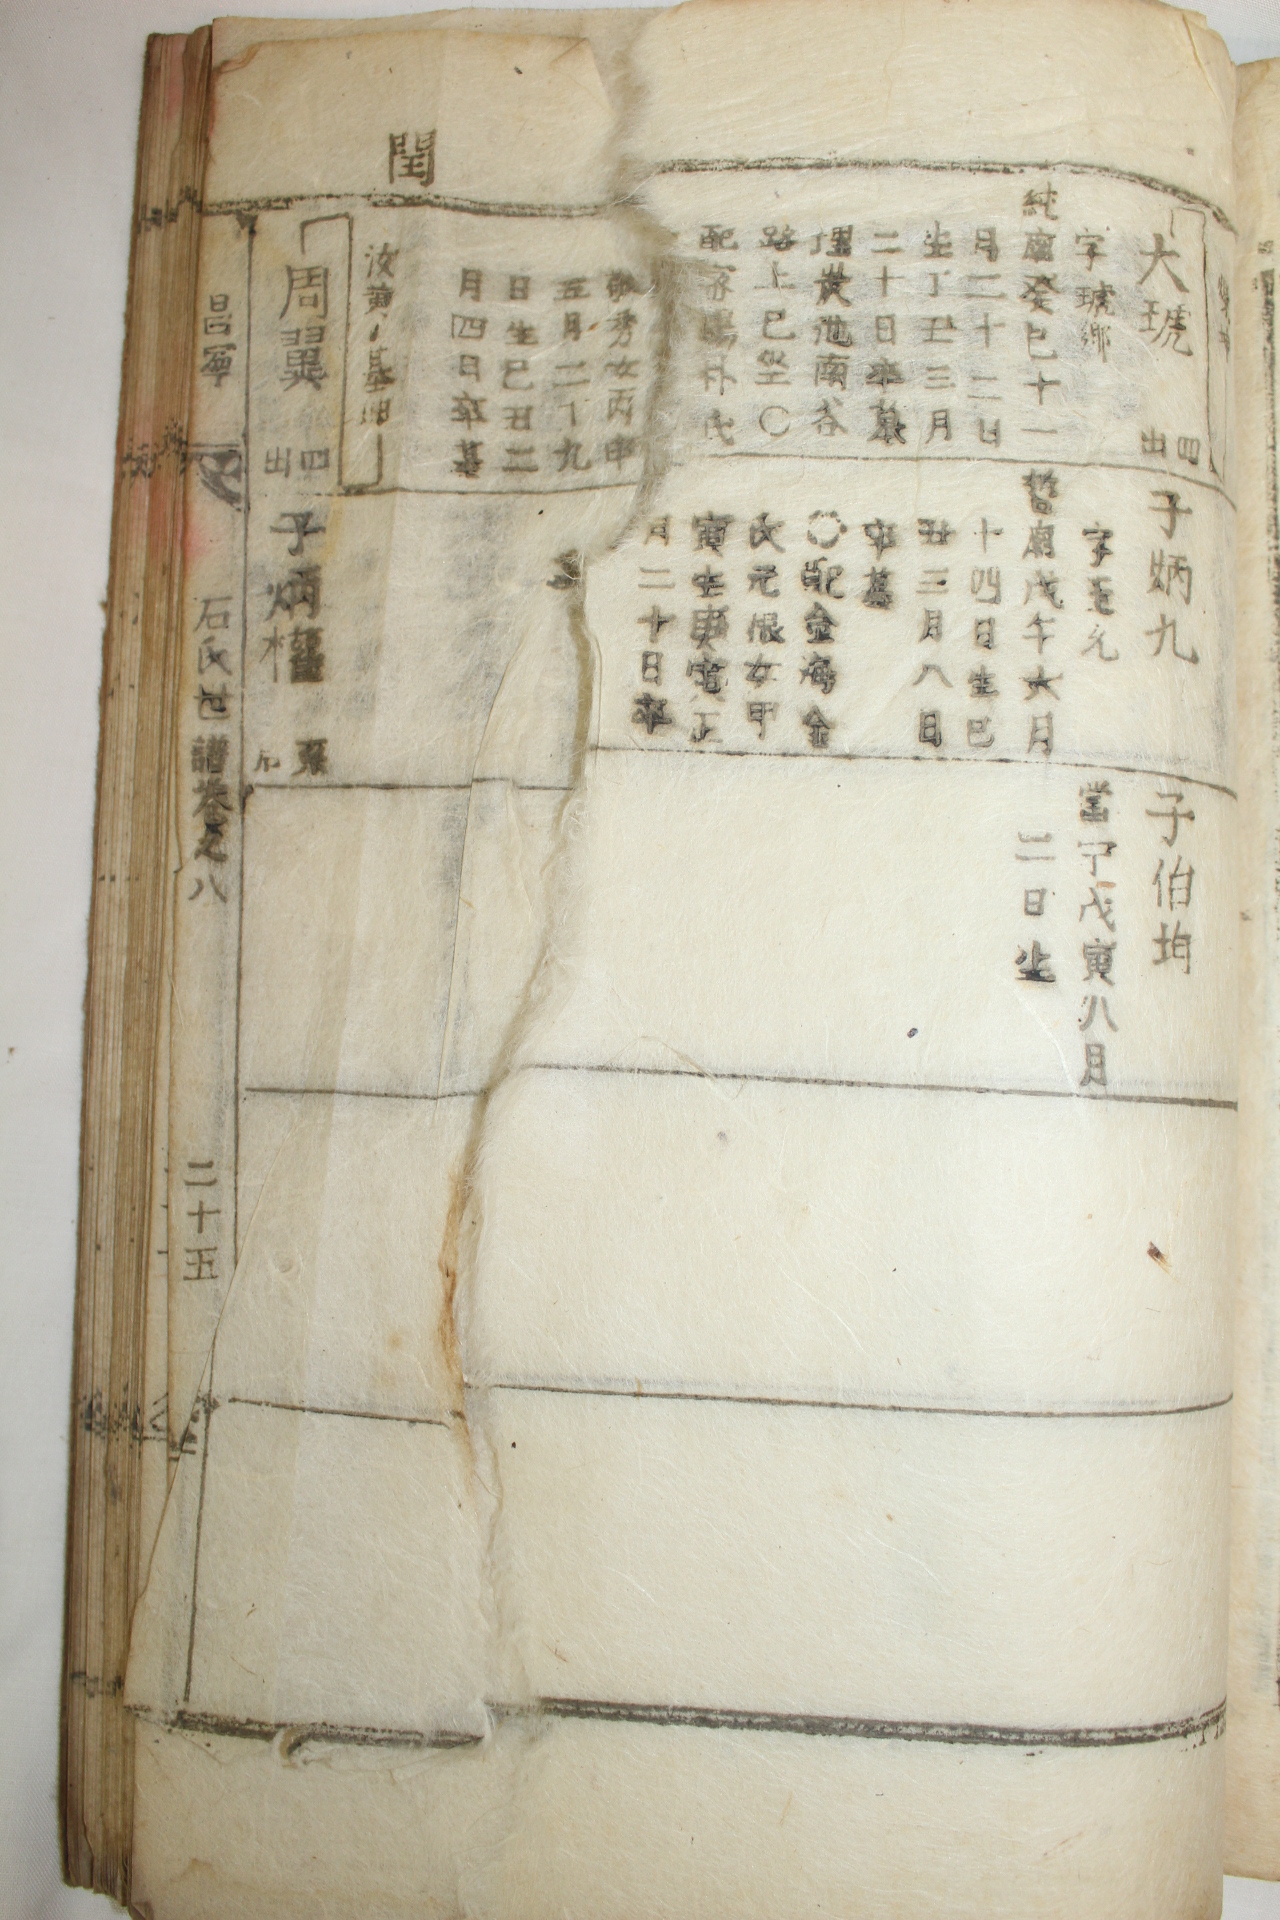 閏
大琥
四
出
字琥鄉
純廟癸巳十一
月二十二日
生丁丑三月
二十日卒墓
埋炭池南谷
路上巳坐〇
配密陽朴氏
秀女丙申
五月二十九
日生巳丑二
月四日卒墓
汝黃
基
周翼
四
出
子炳九
字玉允
哲廟戊午六月
十四日生巳
丑三月八日
卒墓
〇配金海金
氏元浪女甲
寅生庚寅正
月二十日卒
子炳權
子伯均
當宁戊寅八月
二日生
昌寧
石氏世譜卷之八
二十五